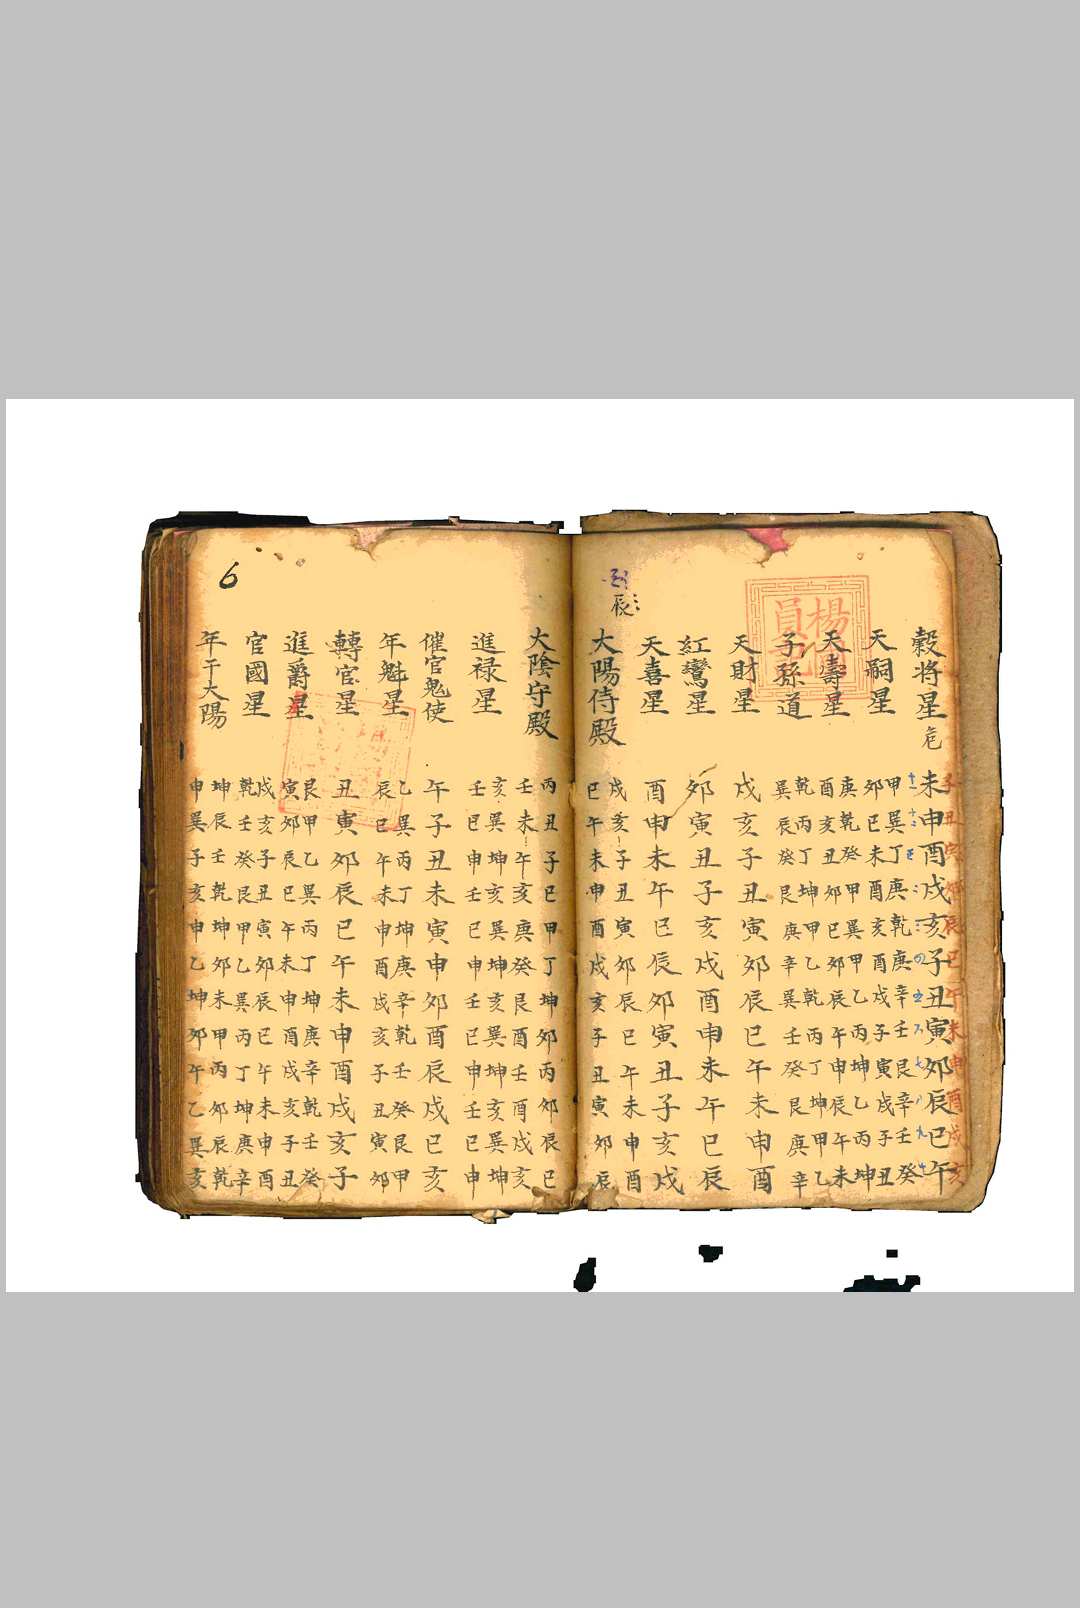 子丑寅卯辰巳午未申酉戌亥
穀將星 危 未申酉戌亥子丑寅卯辰巳午
十一 十二 正 二 三 四 五 六 七 八 九 十
天嗣星 甲巽丁庚乾庚辛壬艮辛壬癸
卯巳未酉亥酉戌子寅戌子丑
天壽星 庚乾癸甲巽甲乙丙坤乙丙坤
酉亥丑卯巳卯辰午申辰午未
子孫道 乾丙丁坤甲乙乾丙丁坤甲乙
巽辰癸艮庚辛巽壬癸艮庚辛
天財星 戌亥子丑寅卯辰巳午未申酉
紅鸞星 卯寅丑子亥戌酉申未午巳辰
天喜星 酉申未午巳辰卯寅丑子亥戌
辰
大陽侍殿 戌亥子丑寅卯辰巳午未申酉
巳午未申酉戌亥子丑寅卯辰
大陰守殿 丙丑子巳甲丁坤卯丙卯辰巳
壬未午亥庚癸艮酉壬酉戌亥
進禄星 亥巽坤亥巽坤亥巽坤亥巽坤
壬巳申壬巳申壬巳申壬巳申
催官鬼使 午子丑未寅申卯酉辰戌巳亥
年魁星 乙巽丙丁坤庚辛乾壬癸艮甲
辰巳午未申酉戌亥子丑寅卯
轉官星 丑寅卯辰巳午未申酉戌亥子
進爵星 艮甲乙巽丙丁坤庚辛乾壬癸
寅卯辰巳午未申酉戌亥子丑
官國星 戌亥子丑寅卯辰巳午未申酉
乾壬癸艮甲乙巽丙丁坤庚辛
年干大陽 坤辰壬乾坤卯未甲丙卯辰乾
申巽子亥申乙坤卯午乙巽亥
6